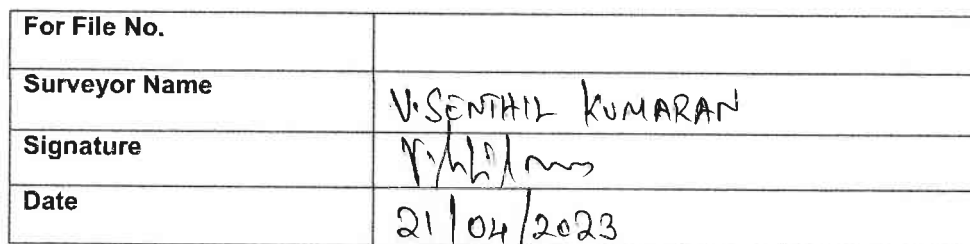 For File No.
Surveyor Name V.SENTHIL KUMARAN
Signature
Date 21/04/2023